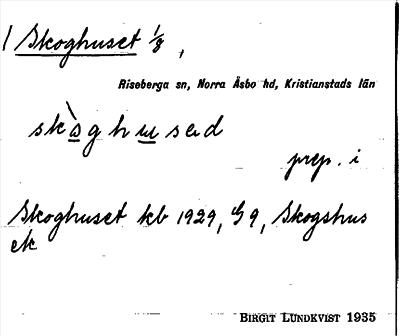 / Skoghuset 1/8,
Riseberga sn, Norra Åsbo hd, Kristianstads län
skòghused
prep. i
Skoghuset kb 1929, G 9, Skogshus
ek
BIRGIT LUNDKVIST 1935